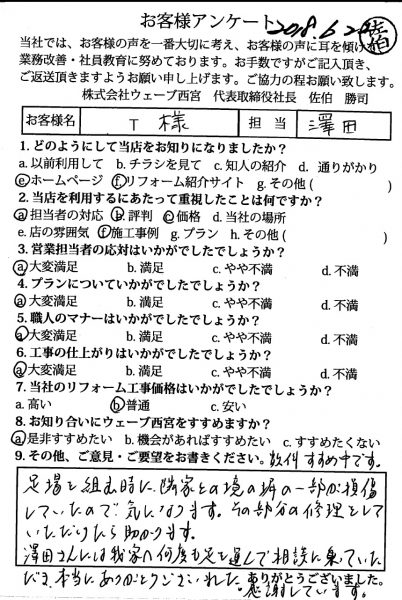 お客様アンケート 2018.6.2
佐伯
当社では、お客様の声を一番大切に考え、お客様の声に耳を傾け
業務改善・社員教育に努めております。お手数ですがご記入頂き、
ご返送頂きますようお願い申し上げます。ご協力の程お願い致します。
株式会社ウェーブ西宮 代表取締役社長 佐伯 勝司
お客様名 T 様 担当 澤田
1. どのようにして当店をお知りになりましたか?
a. 以前利用して b. チラシを見て c. 知人の紹介 d. 通りがかり
e ホームページ f リフォーム紹介サイト g. その他 ( )
2. 当店を利用するにあたって重視したことは何ですか?
a 担当者の対応 b. 評判 c 価格 d. 当社の場所
e. 店の雰囲気 f 施工事例 g. プラン h. その他 ( )
3. 営業担当者の応対はいかがでしたでしょうか?
a 大変満足 b. 満足 c. やや不満 d. 不満
4. プランについていかがでしたでしょうか?
a 大変満足 b. 満足 c. やや不満 d. 不満
5. 職人のマナーはいかがでしたでしょうか?
a 大変満足 b. 満足 c. やや不満 d. 不満
6. 工事の仕上がりはいかがでしたでしょうか?
a 大変満足 b. 満足 c. やや不満 d. 不満
7. 当社のリフォーム工事価格はいかがでしたでしょうか?
a. 高い b 普通 c. 安い
8. お知り合いにウェーブ西宮をすすめますか?
a 是非すすめたい b. 機会があればすすめたい c. すすめたくない
9. その他、ご意見・ご要望をお書きください。数件すすめ中です。
足場を組む時に、隣家との境の塀の一部が損傷
していたので気になります。その部分の修理をして
いただけたら助かります。
澤田さんには我家へ何度も足を運んで相談に乗っていた
だき、本当にありがとうございました。ありがとうございました。
感謝しています。